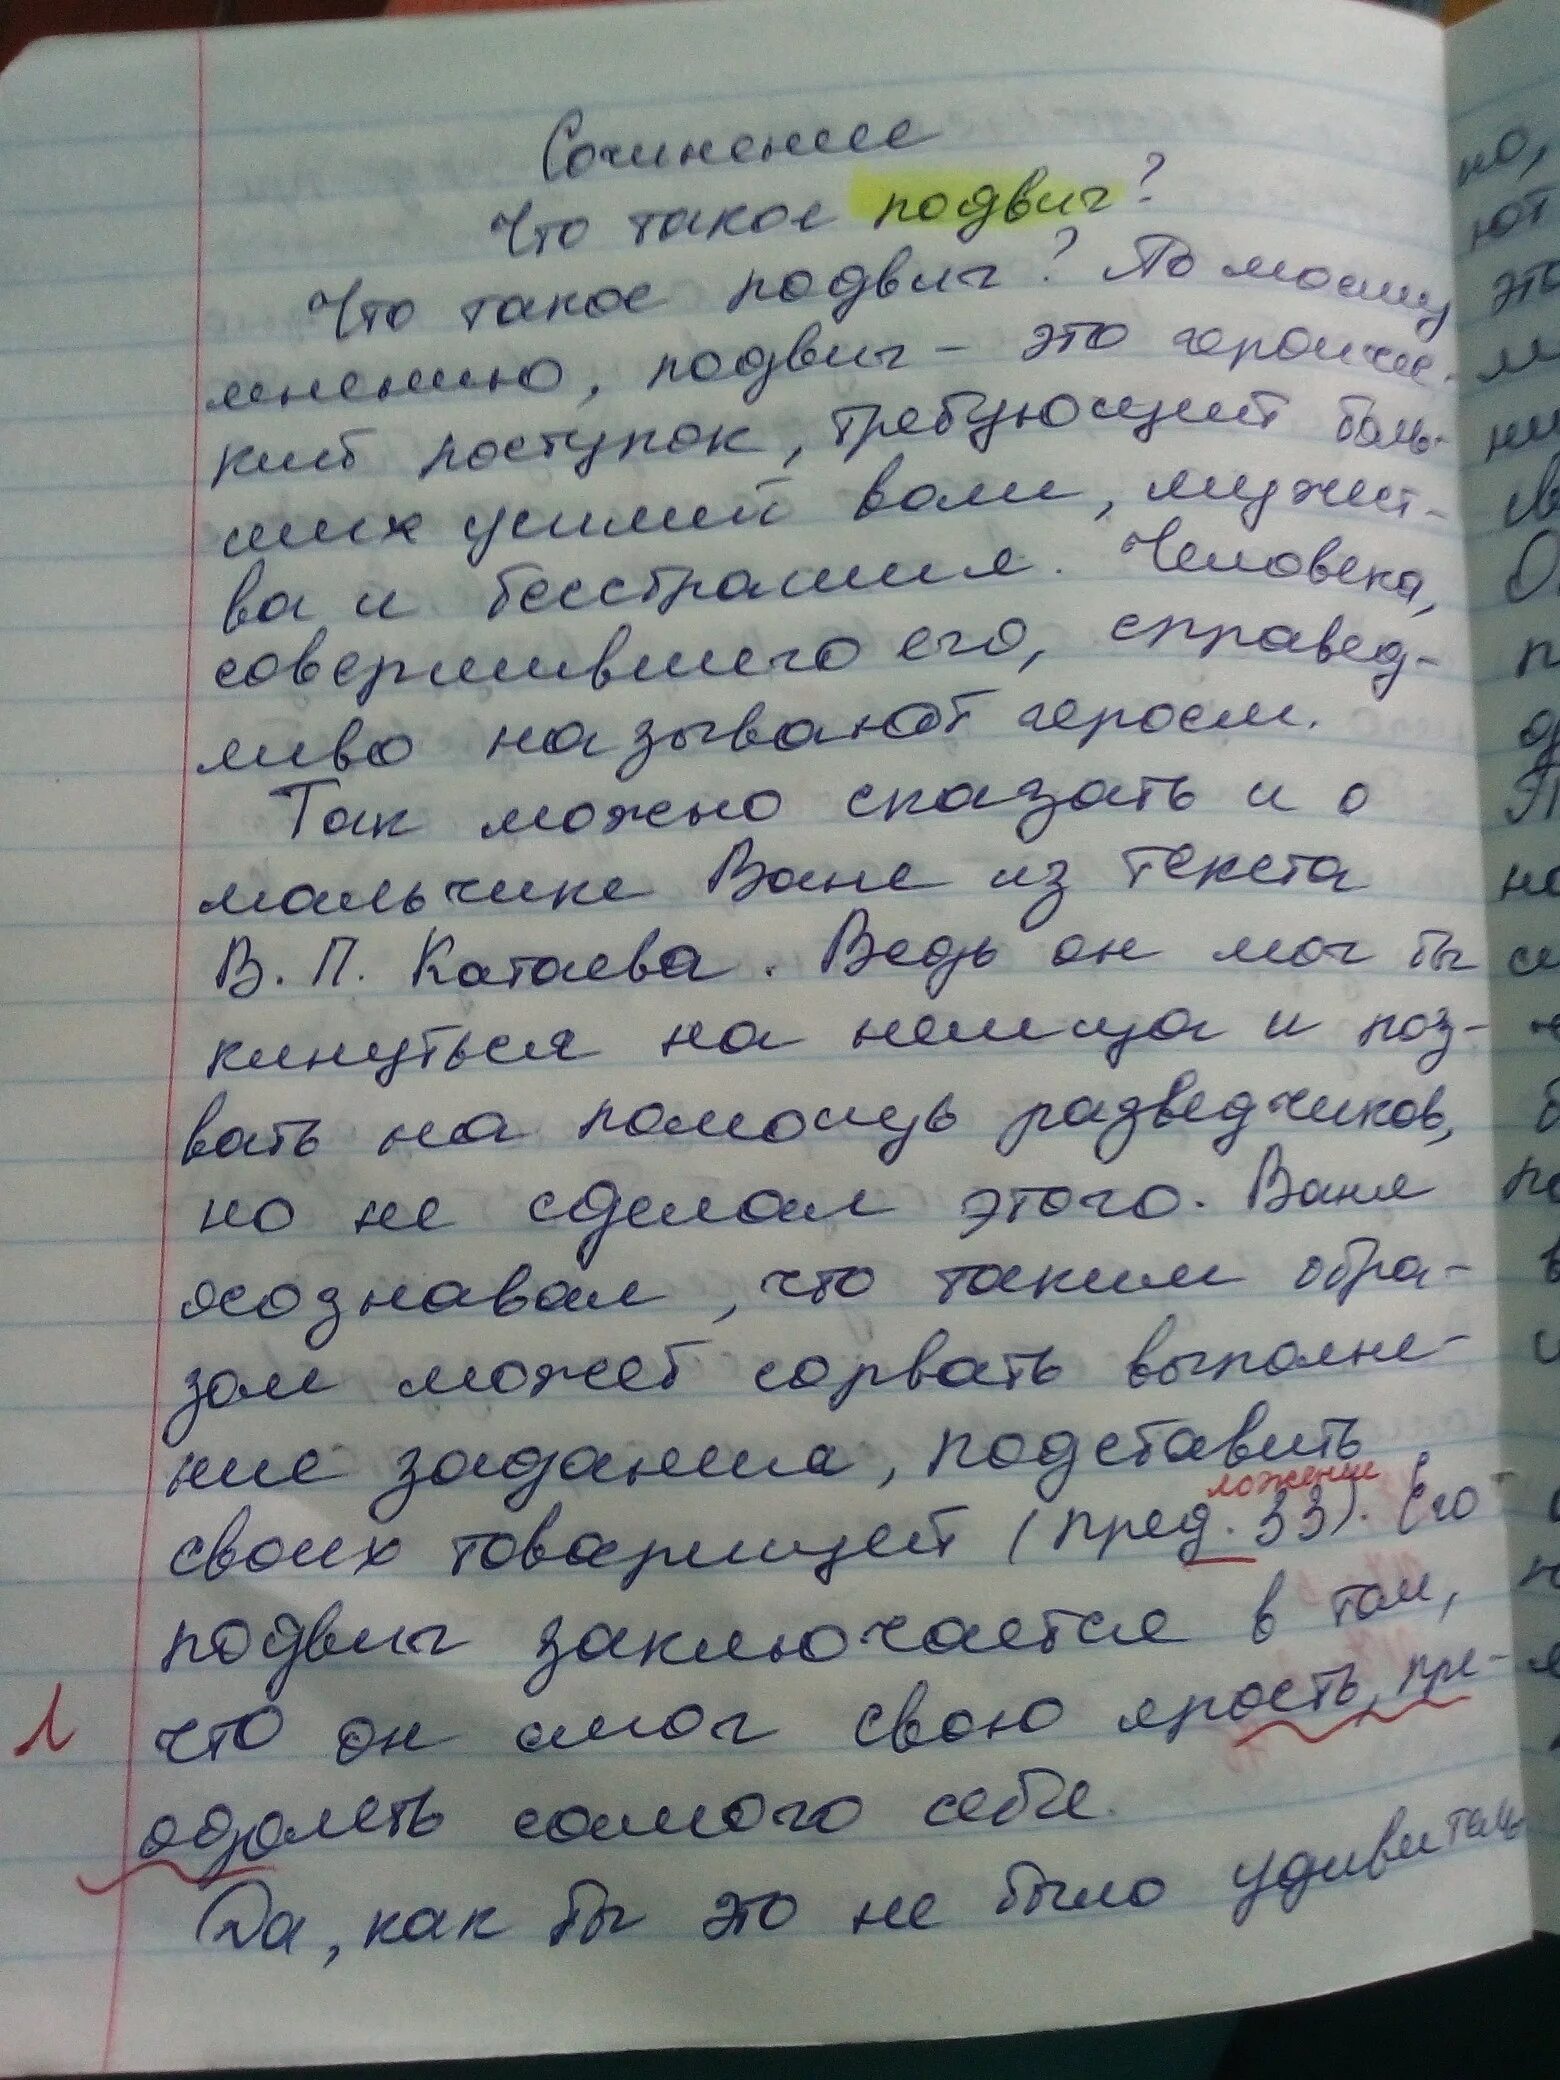 Сочинение
Что такое подвиг?
Что такое подвиг? По моему
мнению, подвиг - это героичес-
кий поступок, требующий боль-
ших усилий воли, мужест-
ва и бесстрашия. Человека,
совершившего его, справед-
ливо называют героем.
Так можно сказать и о
мальчике Ване из текста
В. П. Катаева. Ведь он мог бы
кинуться на немца и поз-
вать на помощь разведчиков,
но не сделал этого. Ваня
осознавал, что таким обра-
зом может сорвать выполне-
ние задания, подставить
ложение
своих товарищей (пред. 33). Его
подвиг заключается в том,
что он смог свою ярость, пре-
л
одолеть самого себе.
Да, как бы это не было удивитель
но,
ют
это